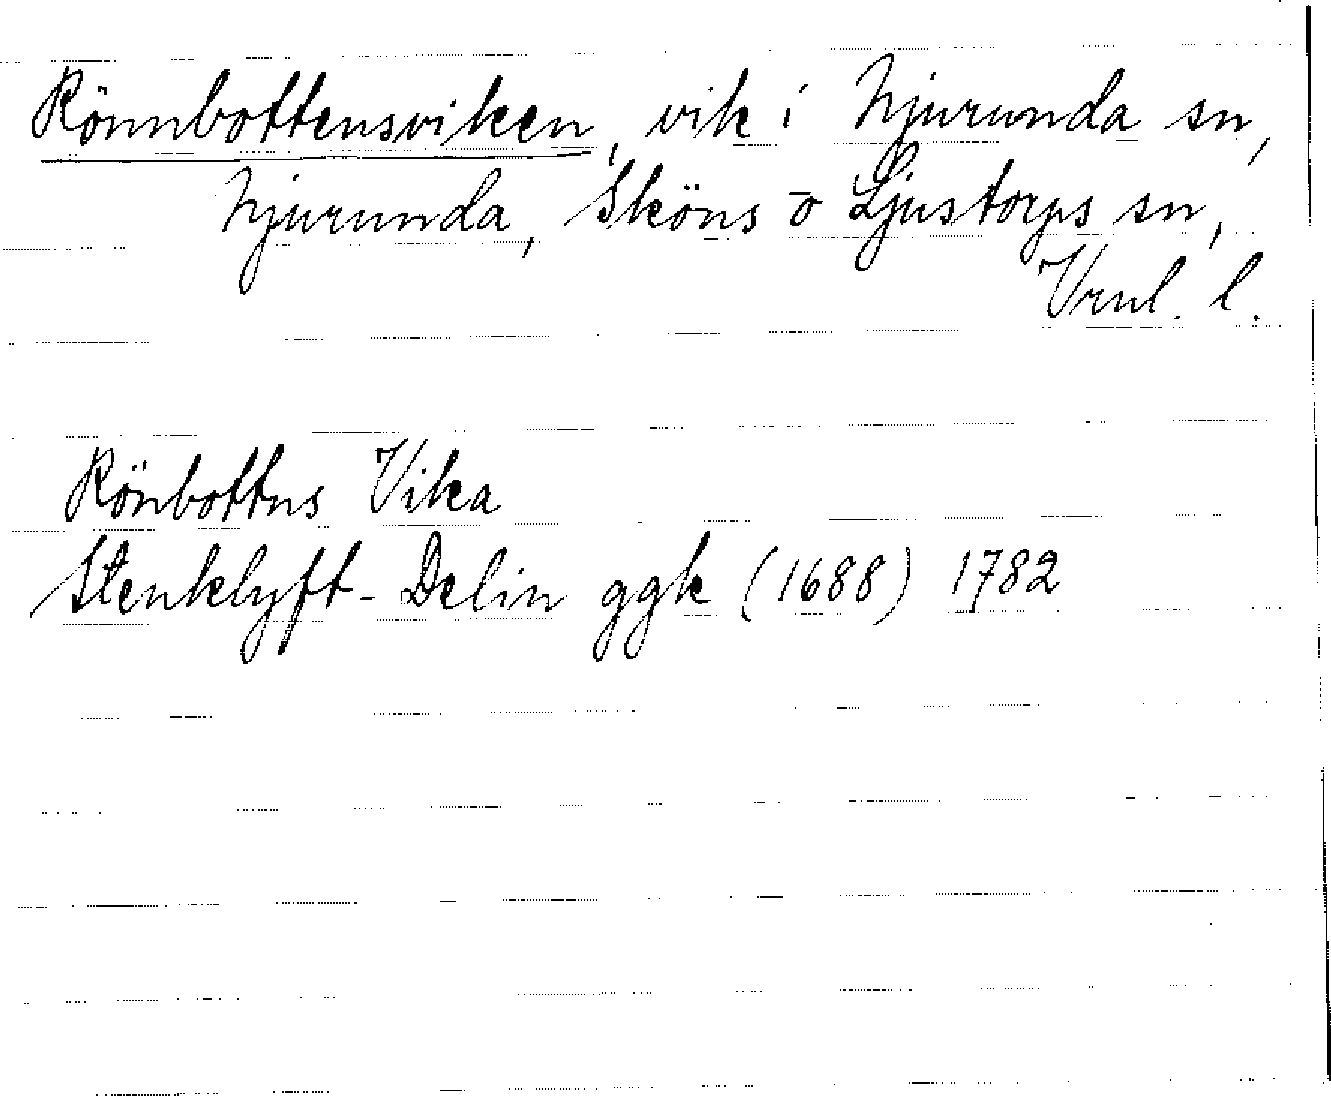 Rönnbottensviken, vik i Njurunda sn,
Njurunda, Sköns o Ljustorps sn,
Vrnl. l.
Rönbottns Vika
Stenklyft-Delin ggk (1688) 1782